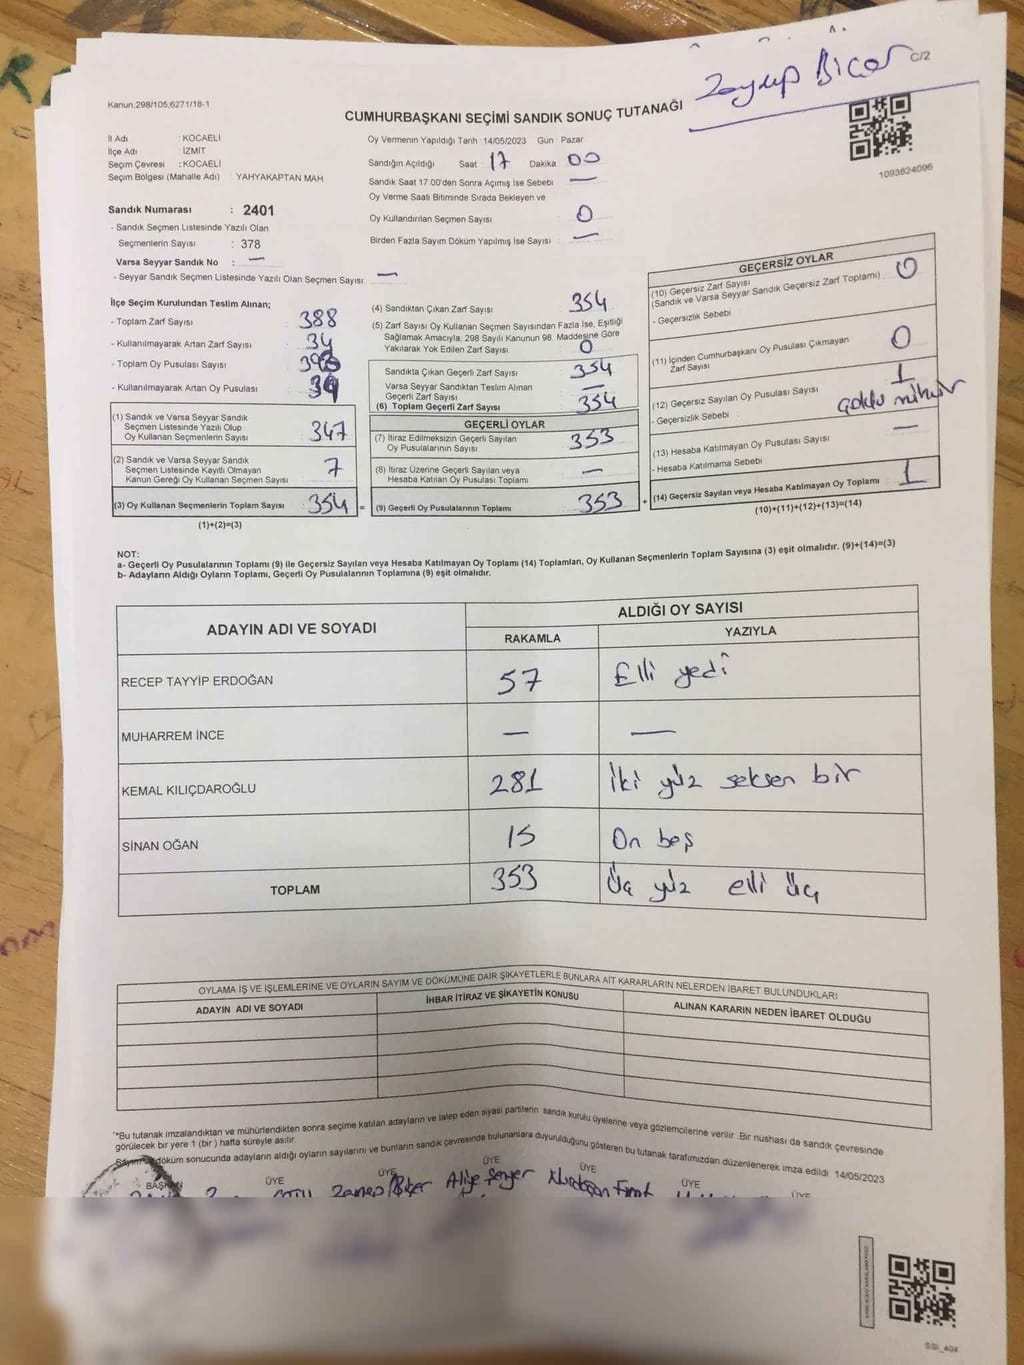 Zeynep Biçer
C/2
Kanun,298/105;6271/18-1
CUMHURBAŞKANI SEÇİMİ SANDIK SONUÇ TUTANAĞI
1093824096
İl Adı : KOCAELİ
İlçe Adı : İZMİT
Seçim Çevresi : KOCAELİ
Seçim Bölgesi (Mahalle Adı) : YAHYAKAPTAN MAH
Sandık Numarası : 2401
- Sandık Seçmen Listesinde Yazılı Olan
Seçmenlerin Sayısı : 378
Varsa Seyyar Sandık No : —
- Seyyar Sandık Seçmen Listesinde Yazılı Olan Seçmen Sayısı: —
Oy Vermenin Yapıldığı Tarih :14/05/2023 Gün : Pazar
Sandığın Açıldığı Saat 17 Dakika 00
Sandık Saat 17:00'den Sonra Açımış İse Sebebi —
Oy Verme Saati Bitiminde Sırada Bekleyen ve
Oy Kullandırılan Seçmen Sayısı 0
Birden Fazla Sayım Döküm Yapılmış İse Sayısı —
İlçe Seçim Kurulundan Teslim Alınan;
- Toplam Zarf Sayısı 388
- Kullanılmayarak Artan Zarf Sayısı : 34
- Toplam Oy Pusulası Sayısı :
- Kullanılmayarak Artan Oy Pusulası : 
(1) Sandık ve Varsa Seyyar Sandık
Seçmen Listesinde Yazılı Olup
Oy Kullanan Seçmenlerin Sayısı : 347
(2) Sandık ve Varsa Seyyar Sandık
Seçmen Listesinde Kayıtlı Olmayan
Kanun Gereği Oy Kullanan Seçmen Sayısı : 7
(3) Oy Kullanan Seçmenlerin Toplam Sayısı : 354 =
(1)+(2)=(3)
(4) Sandıktan Çıkan Zarf Sayısı 354
(5) Zarf Sayısı Oy Kullanan Seçmen Sayısından Fazla İse, Eşitliği
Sağlamak Amacıyla, 298 Sayılı Kanunun 98. Maddesine Göre
Yakılarak Yok Edilen Zarf Sayısı : 0
Sandıkta Çıkan Geçerli Zarf Sayısı : 354
Varsa Seyyar Sandıktan Teslim Alınan
Geçerli Zarf Sayısı : —
(6) Toplam Geçerli Zarf Sayısı : 354
GEÇERLİ OYLAR
(7) İtiraz Edilmeksizin Geçerli Sayılan
Oy Pusulalarının Sayısı : 353
(8) İtiraz Üzerine Geçerli Sayılan veya
Hesaba Katılan Oy Pusulası Toplamı : —
(9) Geçerli Oy Pusulalarının Toplamı : 353 +
GEÇERSİZ OYLAR
(10) Geçersiz Zarf Sayısı
(Sandık ve Varsa Seyyar Sandık Geçersiz Zarf Toplamı) : 0
- Geçersizlik Sebebi
(11) İçinden Cumhurbaşkanı Oy Pusulası Çıkmayan
Zarf Sayısı 0
(12) Geçersiz Sayılan Oy Pusulası Sayısı 1
- Geçersizlik Sebebi :
(13) Hesaba Katılmayan Oy Pusulası Sayısı —
- Hesaba Katılmama Sebebi
(14) Geçersiz Sayılan veya Hesaba Katılmayan Oy Toplamı : 1
(10)+(11)+(12)+(13)=(14)
NOT:
a- Geçerli Oy Pusulalarının Toplamı (9) ile Geçersiz Sayılan veya Hesaba Katılmayan Oy Toplamı (14) Toplamları, Oy Kullanan Seçmenlerin Toplam Sayısına (3) eşit olmalıdır. (9)+(14)=(3)
b- Adayların Aldığı Oyların Toplamı, Geçerli Oy Pusulalarının Toplamına (9) eşit olmalıdır.
ADAYIN ADI VE SOYADI ALDIĞI OY SAYISI
RAKAMLA YAZIYLA
RECEP TAYYİP ERDOĞAN 57 Elli yedi
MUHARREM İNCE — —
KEMAL KILIÇDAROĞLU 281 İki yüz seksen bir
SİNAN OĞAN 15 On beş
TOPLAM 353 Üç yüz elli üç
OYLAMA İŞ VE İŞLEMLERİNE VE OYLARIN SAYIM VE DÖKÜMÜNE DAİR ŞİKAYETLERLE BUNLARA AİT KARARLARIN NELERDEN İBARET BULUNDUKLARI
ADAYIN ADI VE SOYADI İHBAR İTİRAZ VE ŞİKAYETİN KONUSU ALINAN KARARIN NEDEN İBARET OLDUĞU
**Bu tutanak imzalandıktan ve mühürlendikten sonra seçime katılan adayların ve talep eden siyasi partilerin sandık kurulu üyelerine veya gözlemcilerine verilir. Bir nushası da sandık çevresinde
görülecek bir yere 1 (bir) hafta süreyle asılır
Sayım ve döküm sonucunda adayların aldığı oyların sayılarını ve bunların sandık çevresinde bulunanlara duyurulduğunu gösteren bu tutanak tarafımızdan düzenlenerek imza edildi. 14/05/2023
BAŞKAN ÜYE ÜYE ÜYE ÜYE ÜYE ÜYE
Zeynep Biçer Aliye Şenyer
SSİ_404